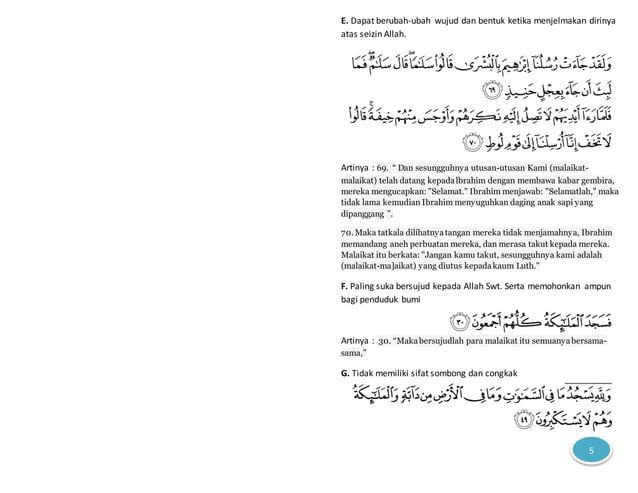 E. Dapat berubah-ubah wujud dan bentuk ketika menjelmakan dirinya
atas seizin Allah.
وَلَقَدْ جَآءَتْ رُسُلُنَآ إِبْرَٰهِيمَ بِٱلْبُشْرَىٰ قَالُوا۟ سَلَٰمًا ۖ قَالَ سَلَٰمٌ ۖ فَمَا
لَبِثَ أَن جَآءَ بِعِجْلٍ حَنِيذٍ ٦٩
فَلَمَّا رَءَآ أَيْدِيَهُمْ لَا تَصِلُ إِلَيْهِ نَكِرَهُمْ وَأَوْجَسَ مِنْهُمْ خِيفَةً ۚ قَالُوا۟
لَا تَخَفْ إِنَّآ أُرْسِلْنَآ إِلَىٰ قَوْمِ لُوطٍ ٧٠
Artinya : 69. “ Dan sesungguhnya utusan-utusan Kami (malaikat-
malaikat) telah datang kepada lbrahim dengan membawa kabar gembira,
mereka mengucapkan: "Selamat." Ibrahim menjawab: "Selamatlah," maka
tidak lama kemudian Ibrahim menyuguhkan daging anak sapi yang
dipanggang ”.
70. Maka tatkala dilihatnya tangan mereka tidak menjamahnya, Ibrahim
memandang aneh perbuatan mereka, dan merasa takut kepada mereka.
Malaikat itu berkata: "Jangan kamu takut, sesungguhnya kami adalah
(malaikat-ma]aikat) yang diutus kepada kaum Luth."
F. Paling suka bersujud kepada Allah Swt. Serta memohonkan ampun
bagi penduduk bumi
فَسَجَدَ ٱلْمَلَٰٓئِكَةُ كُلُّهُمْ أَجْمَعُونَ ٣٠
Artinya : 30. “Maka bersujudlah para malaikat itu semuanya bersama-
sama,”
G. Tidak memiliki sifat sombong dan congkak
وَلِلَّهِ يَسْجُدُ مَا فِى ٱلسَّمَٰوَٰتِ وَمَا فِى ٱلْأَرْضِ مِن دَآبَّةٍ وَٱلْمَلَٰٓئِكَةُ
وَهُمْ لَا يَسْتَكْبِرُونَ ٤٩
5